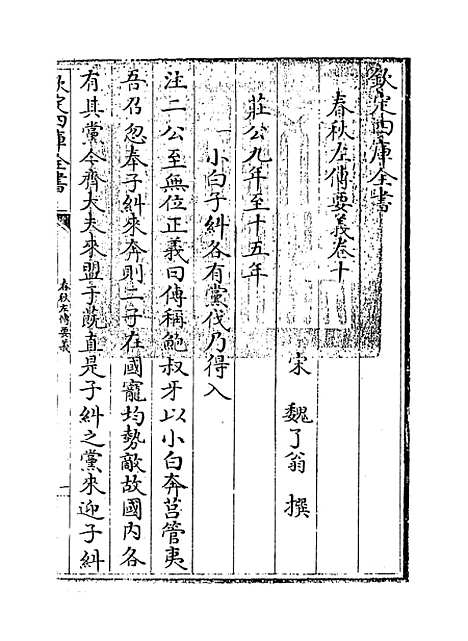 欽定四庫全書
春秋左傳要義卷十
宋 魏了翁 撰
莊公九年至十五年
一 小白子糾各有黨伐乃得入
注二公至無位正義曰傳稱鮑叔牙以小白奔莒管夷
吾召忽奉子糾來奔則二子在國寵均勢敵故國內各
有其黨今齊大夫來盟于蔇直是子糾之黨來迎子糾
欽定四庫全書
春秋左傳要義
一